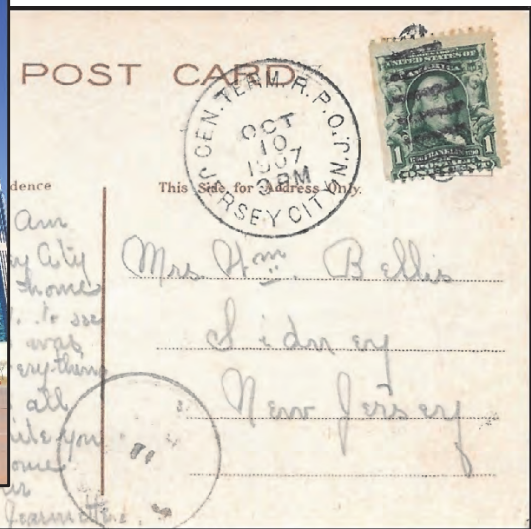 POST CARD
J.CEN.TERM.R.P.O.
OCT
10
1907
3 PM
JERSEY CITY N.J.
UNITED STATES OF
AMERICA
1 1
dence
This Side for Address Only.
am
y City
home
to see
was
erything
all
ile you
ome
Mrs Wm. Bellis
Sidney
New Jersey